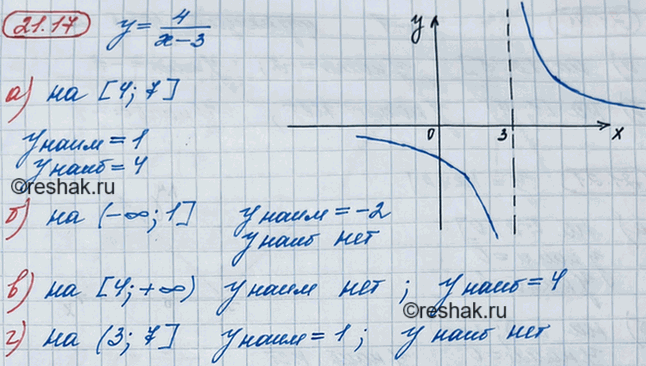 21.17 y = 4/(x-3)
а) на [4; 7]
y наим = 1
y наиб = 4
©reshak.ru
б) на (-∞; 1] y наим = -2
y наиб нет
в) на [4; +∞) y наим нет; y наиб = 4
©reshak.ru
г) на (3; 7] y наим = 1; y наиб нет
y
0 3 x